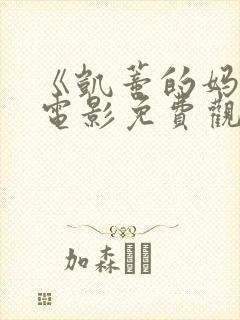 《凱蒂的妈
電影免費觀
加森